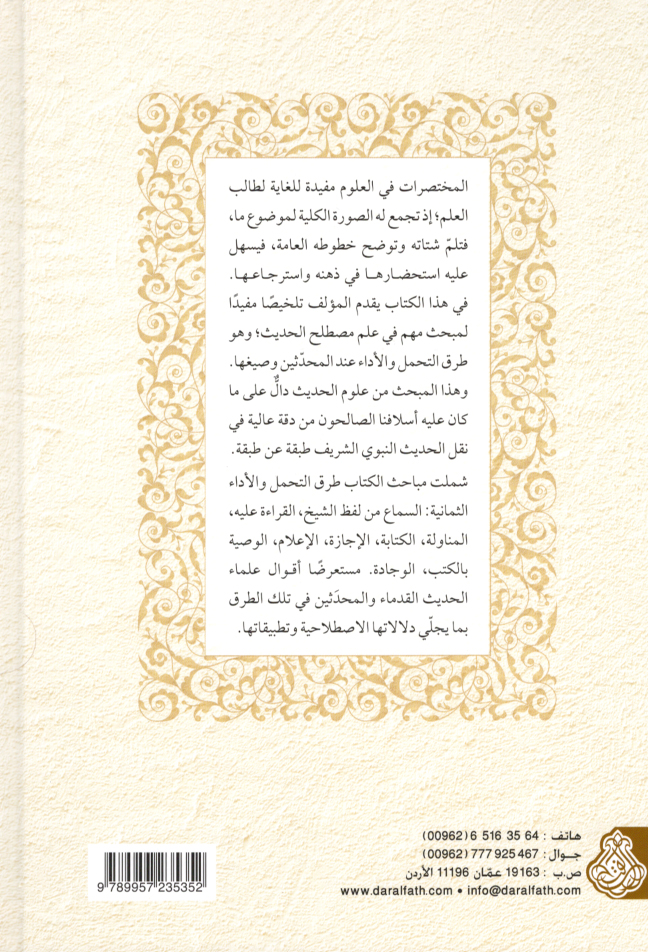 المختصرات في العلوم مفيدة للغاية لطالب
العلم؛ إذ تجمع له الصورة الكلية لموضوع ما،
فتلمّ شتاته وتوضح خطوطه العامة، فيسهل
عليه استحضارها في ذهنه واسترجاعها.
في هذا الكتاب يقدم المؤلف تلخيصًا مفيدًا
لمبحث مهم في علم مصطلح الحديث؛ وهو
طرق التحمل والأداء عند المحدّثين وصيغها.
وهذا المبحث من علوم الحديث دالٌّ على ما
كان عليه أسلافنا الصالحون من دقة عالية في
نقل الحديث النبوي الشريف طبقة عن طبقة.
شملت مباحث الكتاب طرق التحمل والأداء
الثمانية: السماع من لفظ الشيخ، القراءة عليه،
المناولة، الكتابة، الإجازة، الإعلام، الوصية
بالكتب، الوجادة. مستعرضًا أقوال علماء
الحديث القدماء والمحدَثين في تلك الطرق
بما يجلّي دلالاتها الاصطلاحية وتطبيقاتها.
هاتف : 64 35 516 6 (00962)
جوال : 467 925 777 (00962)
ص.ب : 19163 عمّان 11196 الأردن
www.daralfath.com • info@daralfath.com
9 789957 235352